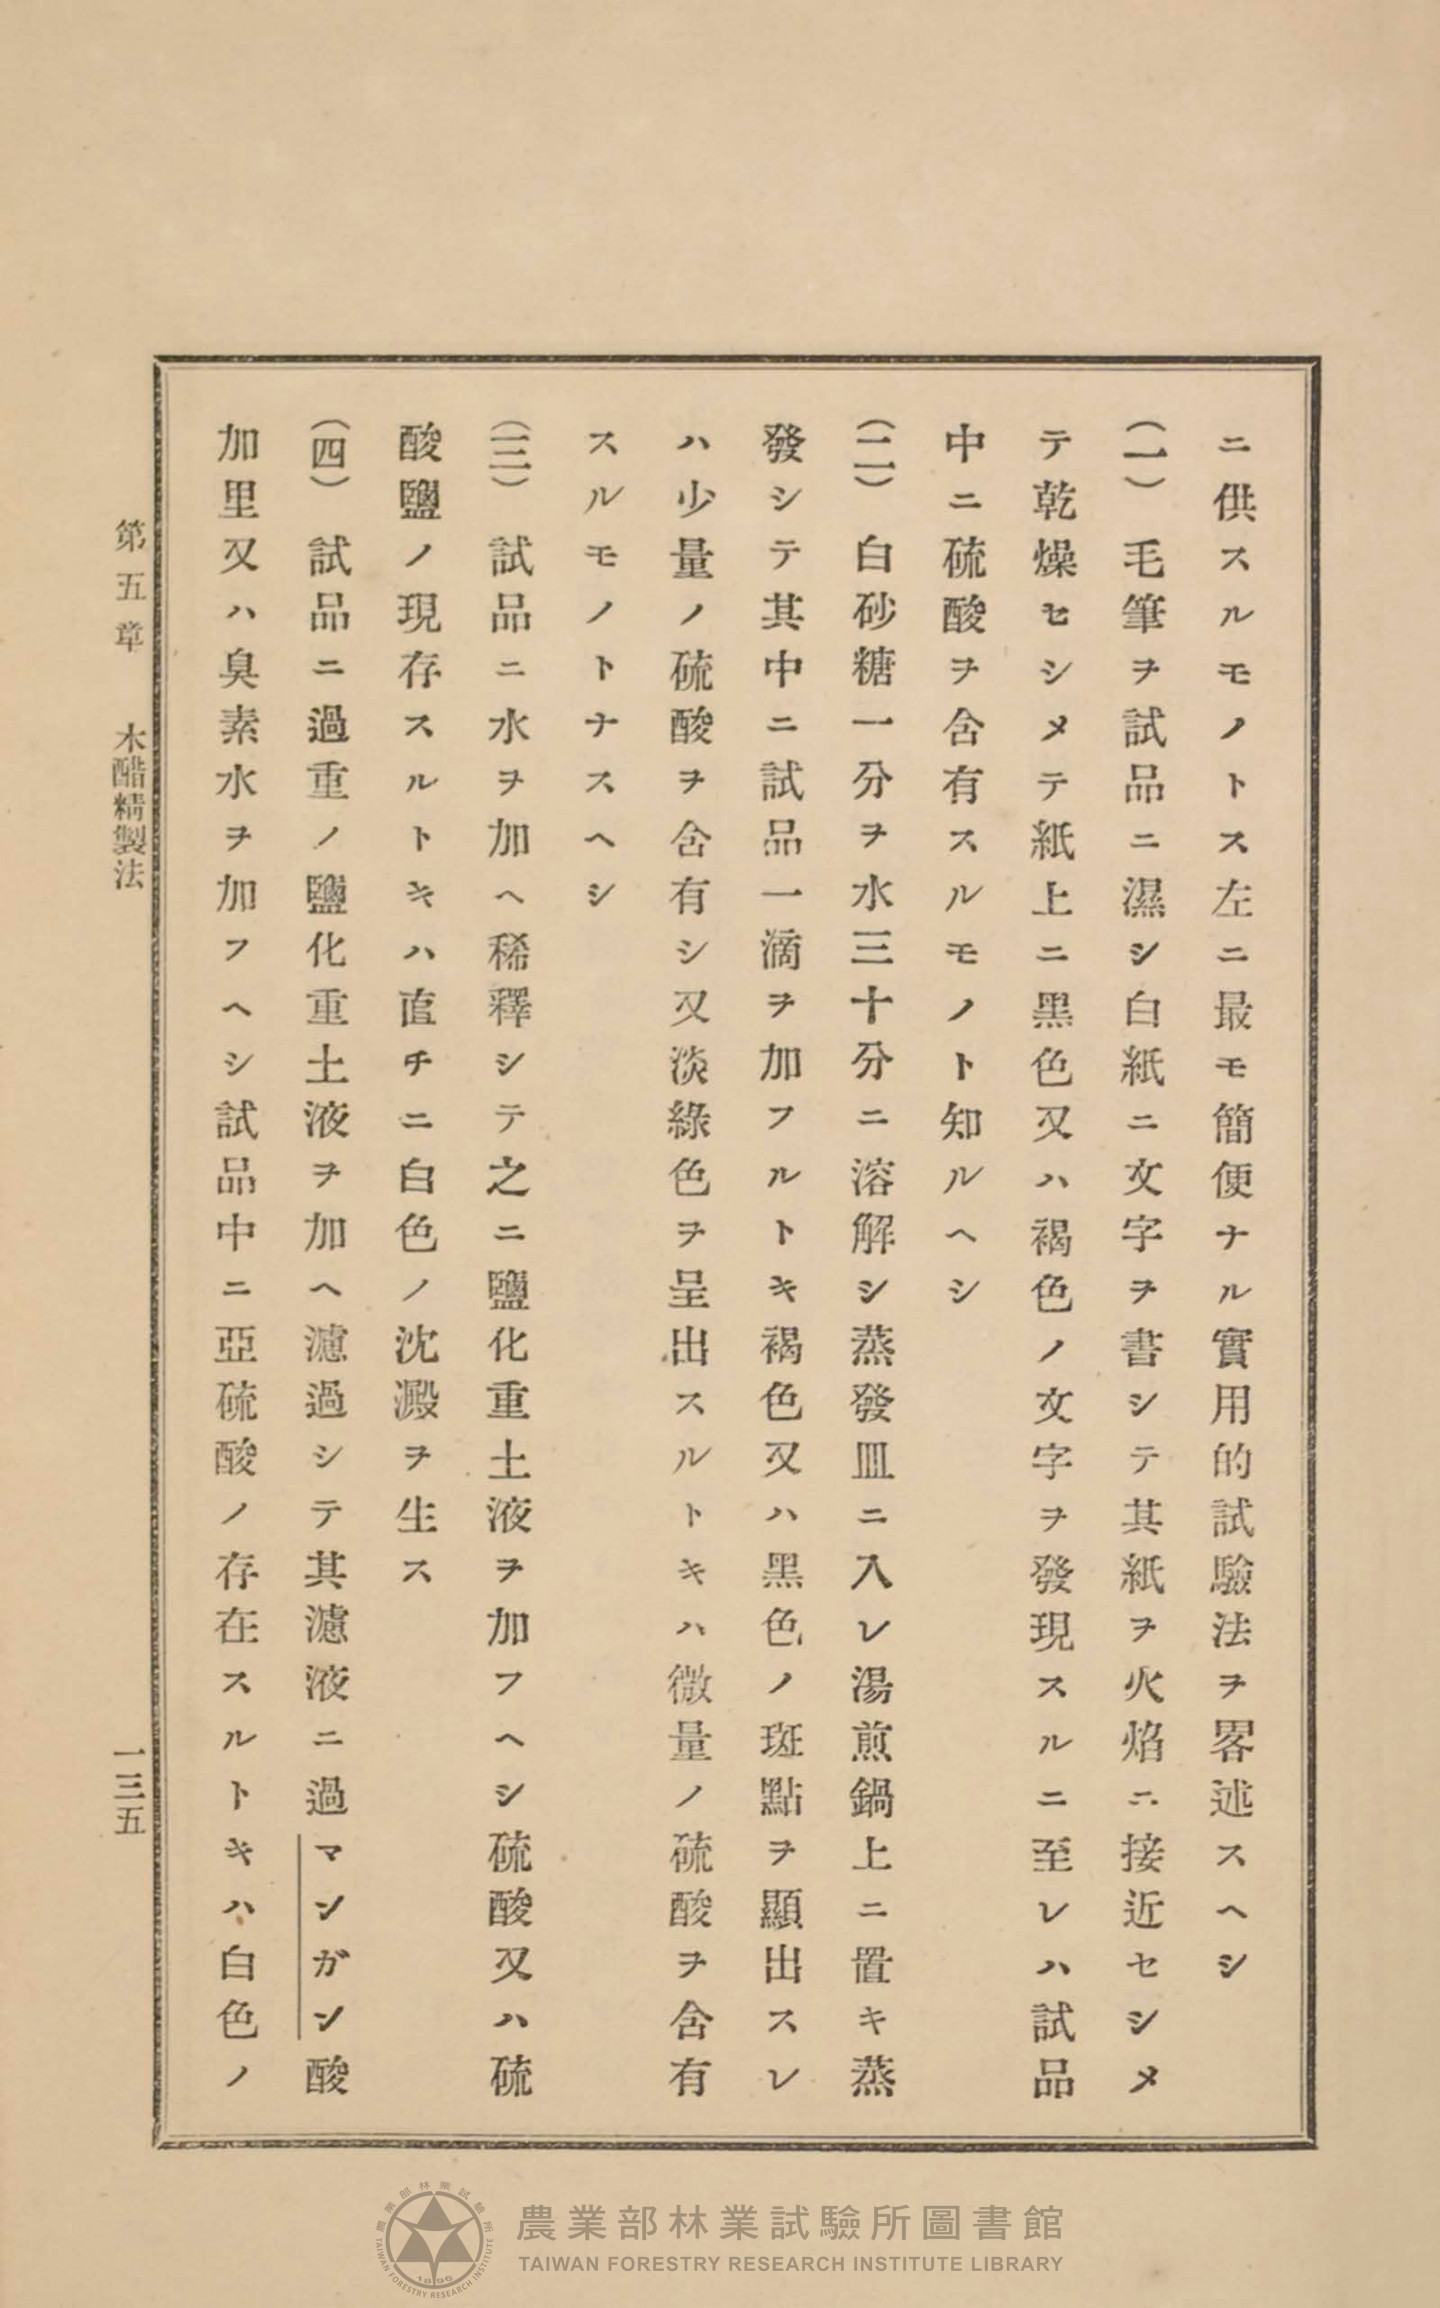 ニ供スルモノトス左ニ最モ簡便ナル實用的試驗法ヲ畧述スヘシ
(一) 毛筆ヲ試品ニ濕シ白紙ニ文字ヲ書シテ其紙ヲ火焰ニ接近セシメ
テ乾燥セシメテ紙上ニ黑色又ハ褐色ノ文字ヲ發現スルニ至レハ試品
中ニ硫酸ヲ含有スルモノト知ルヘシ
(二) 白砂糖一分ヲ水三十分ニ溶解シ蒸發皿ニ入レ湯煎鍋上ニ置キ蒸
發シテ其中ニ試品一滴ヲ加フルトキ褐色又ハ黑色ノ斑點ヲ顯出スレ
ハ少量ノ硫酸ヲ含有シ又淡綠色ヲ呈出スルトキハ微量ノ硫酸ヲ含有
スルモノトナスヘシ
(三) 試品ニ水ヲ加ヘ稀釋シテ之ニ鹽化重土液ヲ加フヘシ硫酸又ハ硫
酸鹽ノ現存スルトキハ直チニ白色ノ沈澱ヲ生ス
(四) 試品ニ過重ノ鹽化重土液ヲ加ヘ濾過シテ其濾液ニ過マンガン酸
加里又ハ臭素水ヲ加フヘシ試品中ニ亞硫酸ノ存在スルトキハ白色ノ
第五章 木醋精製法 一三五
農業部林業試驗所圖書館
TAIWAN FORESTRY RESEARCH INSTITUTE LIBRARY
農業部林業試驗所
TAIWAN FORESTRY RESEARCH INSTITUTE
1896